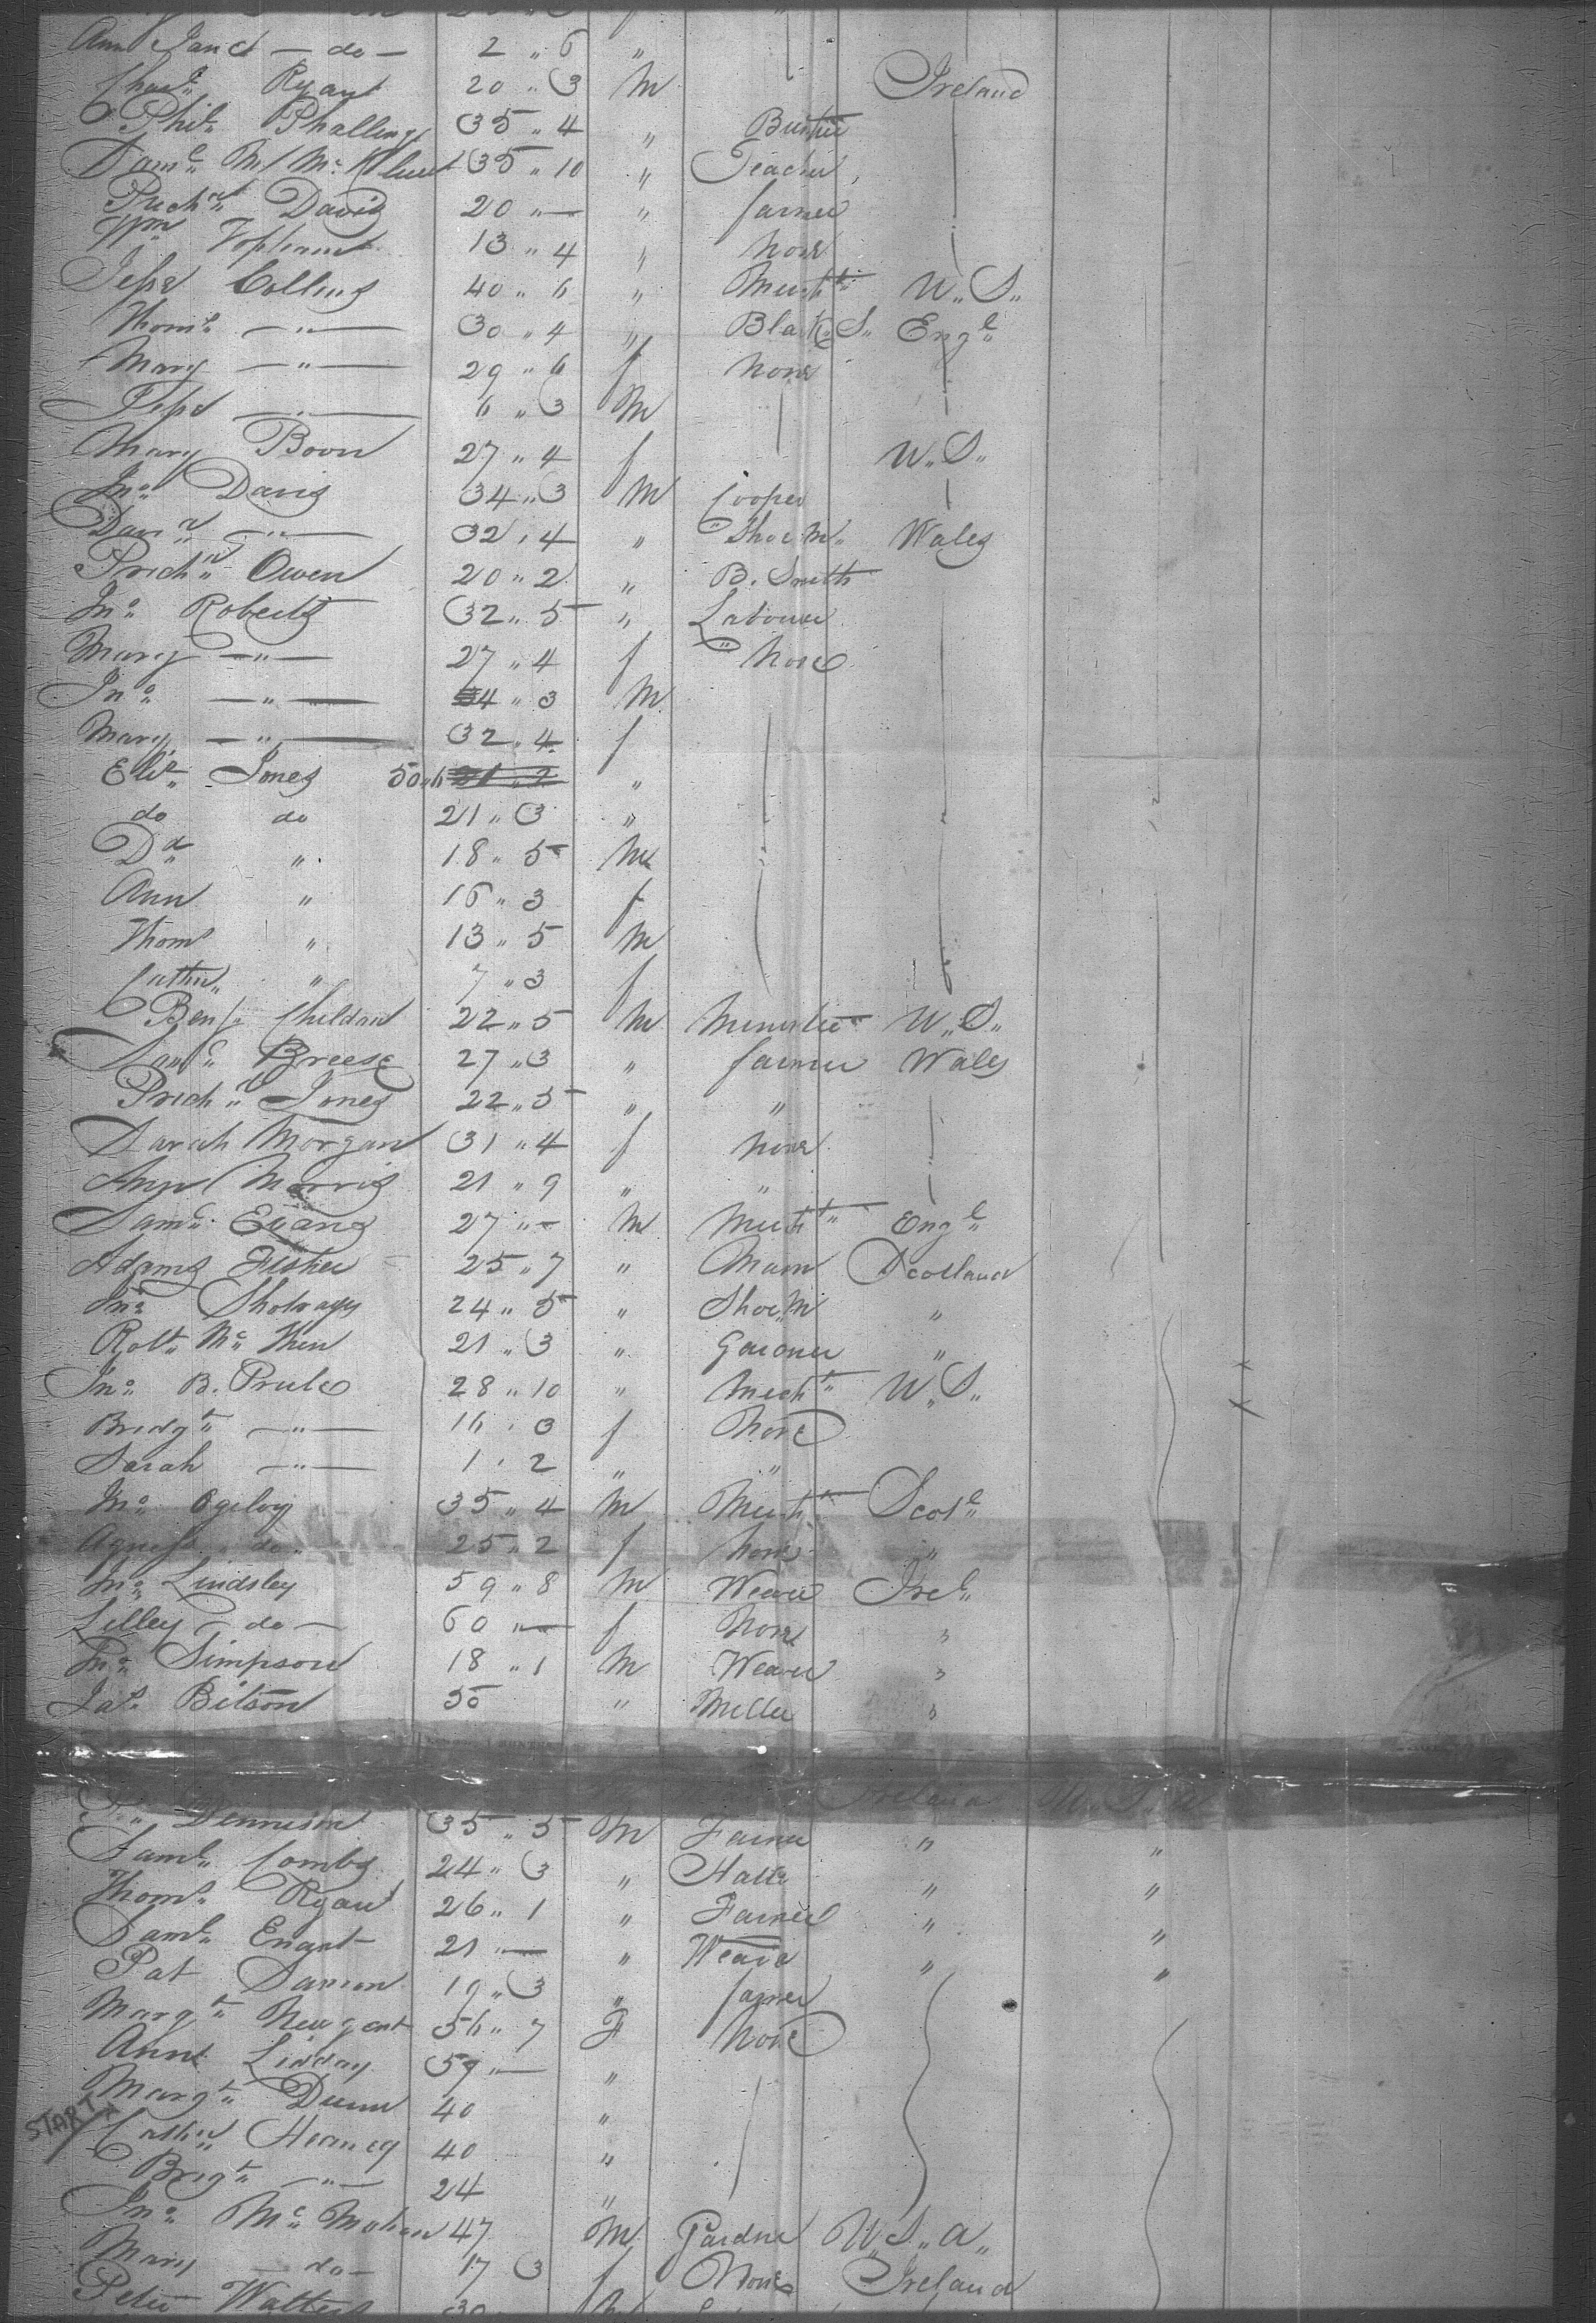 Ann Janet — do — 2 " 6 "
Chas. Ryan 20 " 3 M Ireland
Phil. Phalling 35 " 4 "
Saml. M. Mc 35 " 10 " Teacher
Richd. Davis 20 " — " farmer
Wm 13 " 4 " None
Jesse Collins 40 " 6 " Mercht. U. S.
Thoms. — " — 30 " 4 " Black S. Engl.
Mary — " — 29 " 6 f None
Jesse — " — 6 " 3 M
Mary Boon 27 " 4 f U. S.
Jno. Davis 34 " 3 M Cooper
Davd. — " — 32 " 4 " Shoe M. Wales
Richd. Owen 20 " 2 " B. Smith
Jno. Roberts 32 " 5 " Labourer
Mary — " — 27 " 4 f None
Jno. — " — 4 " 3 M
Mary — " — 32 " 4 f
Eliz. Jones 50 " 6 "
do do 21 " 3 "
Dd " 18 " 5 M
Ann " 16 " 3 f
Thoms " 13 " 5 M
Cathn. " 7 " 3 f
Benj. Childan 22 " 5 M Minister U. S.
Saml. Breese 27 " 3 " farmer Wales
Richd. Jones 22 " 5 " "
Sarah Morgan 31 " 4 f None
Ann Morris 21 " 9 " "
Saml. Evans 27 " — M Mercht. Engl.
Adams Fisher 25 " 7 " Scotland
Jno. 24 " 5 " Shoe M "
Robt. Mc 21 " 3 " Gardner "
Jno. B. Prule 28 " 10 " Mecht. U. S.
Bridgt. — " — 16 " 3 f None
Sarah — " — 1 " 2 " "
Jno. Ogilvy 35 " 4 M Mercht. Scotl.
Agness " do " 25 " 2 f None "
Jno. Lindsley 59 " 8 M Weaver Irel.
Lilley — do — 60 " — f None "
Jno. Simpson 18 " 1 M Weaver "
Jas. Bitson 50 " Miller "
Ireland U. S. a
" Dennison 35 " 5 M Farmer " "
Saml. Combs 24 " 3 " Hatter " "
Thoms. Ryan 26 " 1 " Farmer " "
Saml. 21 " — " Weaver " "
Pat 19 " 3 " farmer
Margt. Neugent 56 " 7 F None
Ann Lidday 59 " — "
Margt. Dunn 40 "
START
Cathn. Heaney 40 "
Brigt. — " — 24 "
Jno. Mc Mahan 47 M Gardner U. S. a.
Mary — do — 17 3 f None Ireland
Peter Walters 30 M